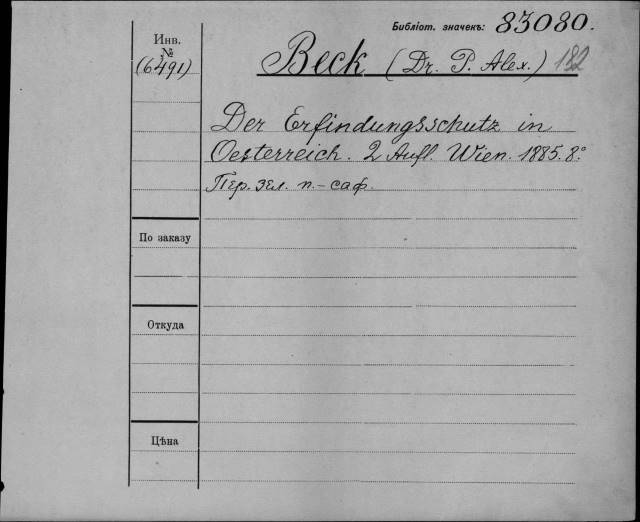 Библіот. значекъ: 83080.
Инв.
№
(6491)
Beck (Dr. P. Alex.) 182
Der Erfindungsschutz in
Oesterreich. 2 Aufl. Wien. 1885. 8.°
Пер. зел. п.-саф.
По заказу
Откуда
Цѣна